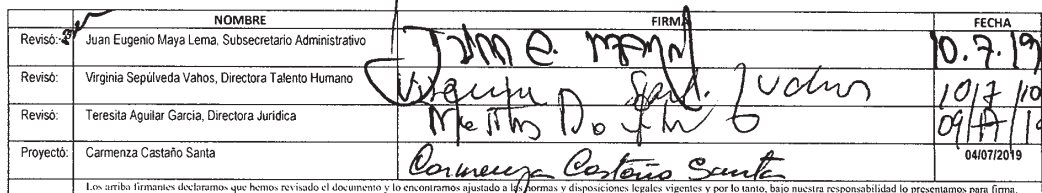 NOMBRE FIRMA FECHA
Revisó: Juan Eugenio Maya Lema, Subsecretario Administrativo 10.7.19
Revisó: Virginia Sepúlveda Vahos, Directora Talento Humano Virginia Sepul. Vahos 10/7/
Revisó: Teresita Aguilar García, Directora Jurídica
Proyectó: Carmenza Castaño Santa Carmenza Castaño Santa 04/07/2019
Los arriba firmantes declaramos que hemos revisado el documento y lo encontramos ajustado a las normas y disposiciones legales vigentes y por lo tanto, bajo nuestra responsabilidad lo presentamos para firma.